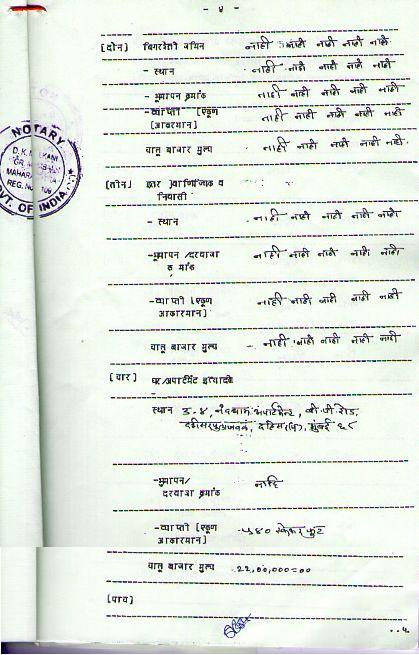 - ४ -
[दोन] बिगरशेती जमिन नाही नाही नाही नाही नाही
- स्थान नाही नाही नाही नाही नाही
- भूमापन क्रमांक नाही नाही नाही नाही नाही
- व्याप्ती [एकूण नाही नाही नाही नाही नाही
आकारमान]
चालू बाजार मुल्य नाही नाही नाही नाही नाही
NOTARY
MAHARA
REG. NO. 106
GOVT. OF INDIA
[तीन] इमारत वाणिज्यिक व
निवासी
- स्थान नाही नाही नाही नाही नाही
- भूमापन /दरवाजा नाही नाही नाही नाही नाही
क्रमांक
- व्याप्ती [एकूण नाही नाही नाही नाही नाही
आकारमान]
चालू बाजार मुल्य नाही नाही नाही नाही नाही
[चार] घर/अपार्टमेंट इत्यादी
स्थान ड-४, नंदधाम अपार्टमेंट, रोड,
दहिसर जवळ, दहिसर (प), मुंबई ६८
- भूमापन/ नाहि
दरवाजा क्रमांक
- व्याप्ती [एकूण ५४० स्केअर फुट
आकारमान]
चालू बाजार मुल्य 22,00,000=00
[पाच]
..५